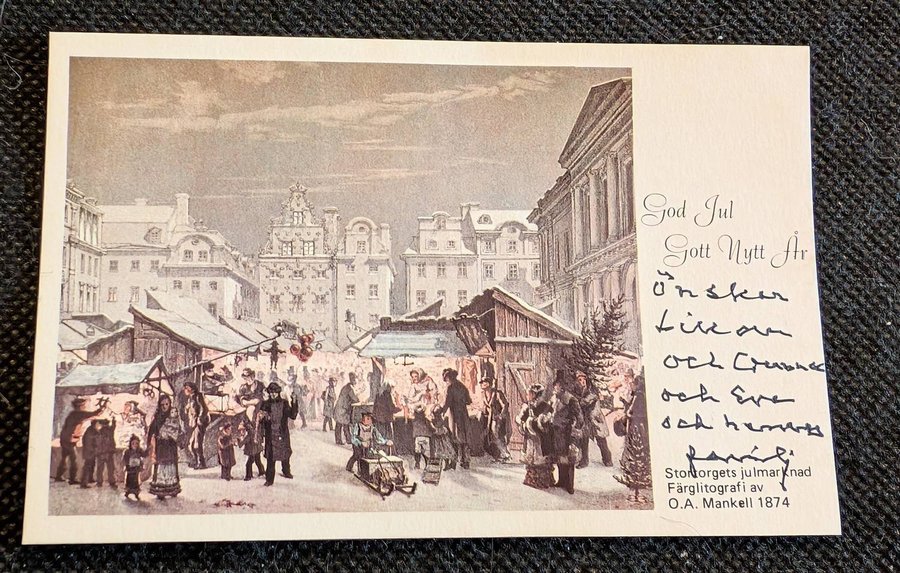 God Jul
Gott Nytt År
Önsker
och
och Eva
och hennes
familj
Stortorgets julmarknad
Färglitografi av
O.A. Mankell 1874